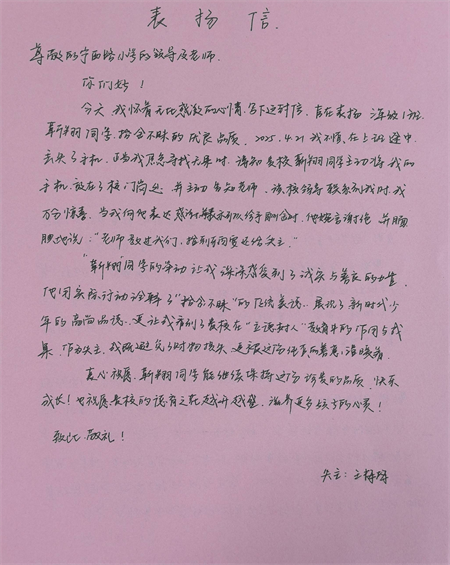 表扬信
尊敬的宁西路小学的领导及老师.
你们好!
今天,我怀着无比感激的心情,写下这封信,旨在表扬 1班
靳翔同学,拾金不昧的优良品质. 2025.4.21 我不慎在上班途中
丢失了手机,正当我焦急寻找无果时,得知贵校靳翔同学主动将我的
手机放在了校门岗处,并主动告知老师,该校领导联系到我时,我
万分惊喜,当我向他表达感谢并给予酬金时,他婉言谢绝,并腼
腆地说:“老师教过我们,捡到东西要还给失主.”
“靳翔”同学的举动让我深深感受到了诚实与善良的力量,
他用实际行动诠释了“拾金不昧”的传统美德,展现了新时代少
年的高尚品德,更让我看到了贵校在“立德树人”教育中的作用与成
果,作为失主,我既避免了财物损失,更被这份纯真的善意温暖着.
真心祝愿,靳翔同学能继续保持这份珍贵的品质,快乐
成长!也祝愿贵校的德育之花越开越盛,滋养更多孩子的心灵!
致此敬礼!
失主:王